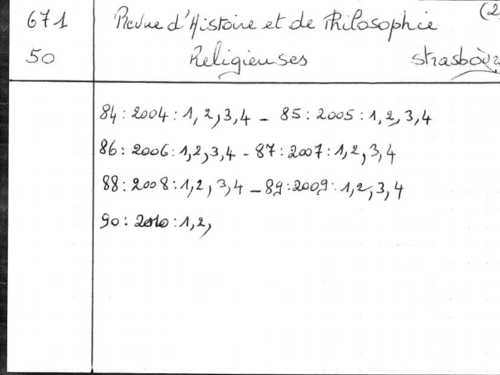 671 Revue d'Histoire et de Philosophie (2
50 Religieuses Strasbourg
84 : 2004 : 1, 2, 3, 4 - 85 : 2005 : 1, 2, 3, 4
86 : 2006 : 1, 2, 3, 4 - 87 : 2007 : 1, 2, 3, 4
88 : 2008 : 1, 2, 3, 4 - 89 : 2009 : 1, 2, 3, 4
90 : 2010 : 1, 2,